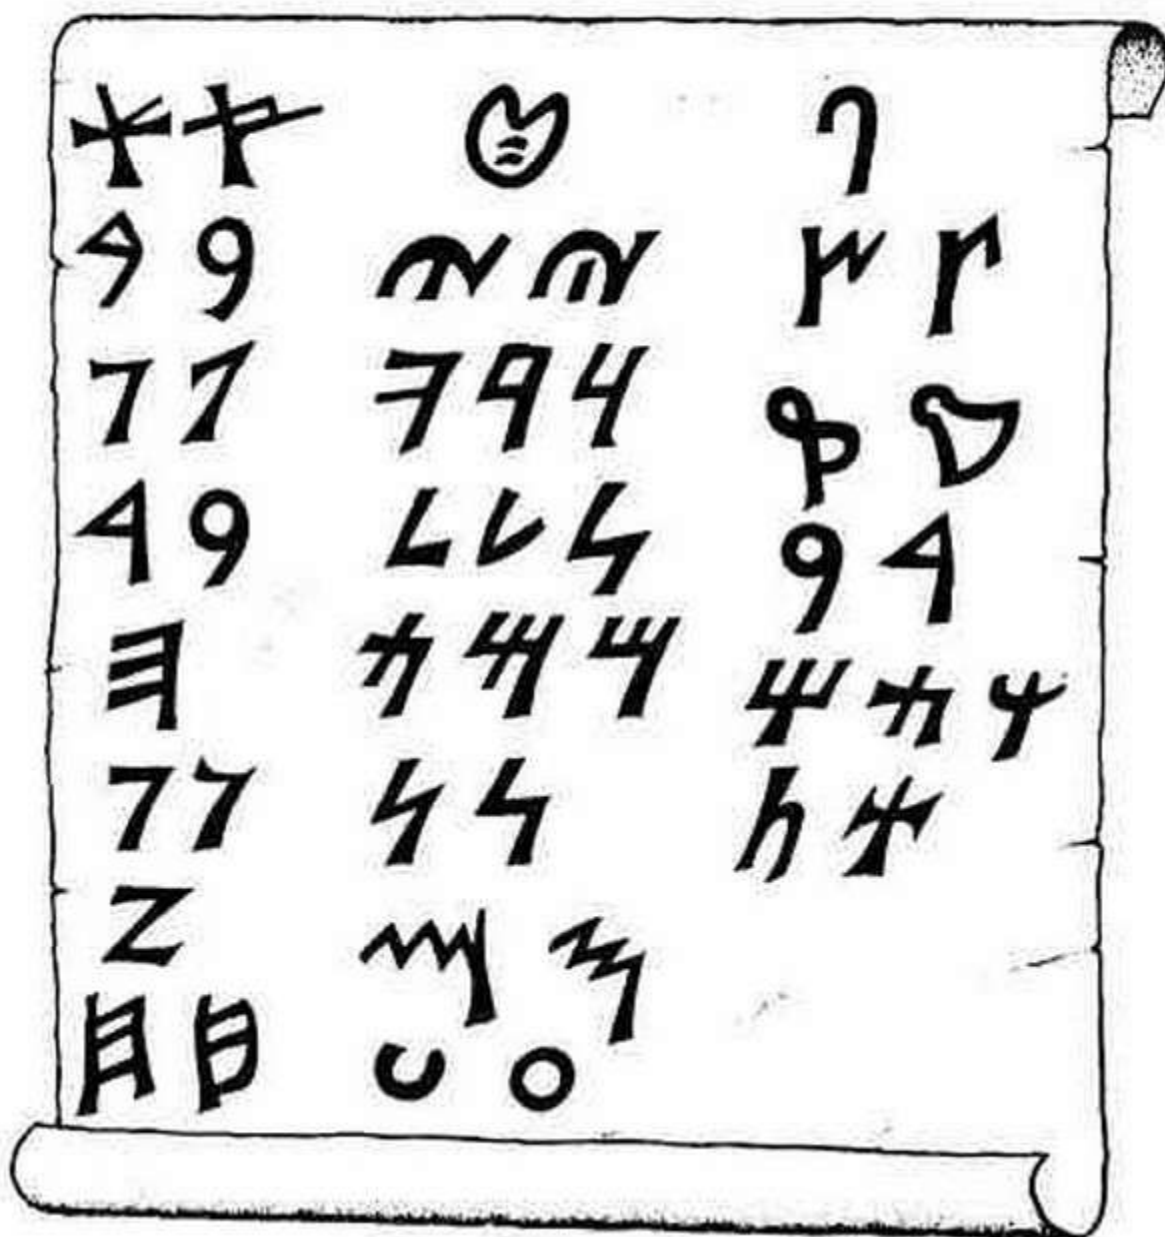 𐤀 𐤀
𐤁 𐤁
𐤂 𐤂
𐤃 𐤃
𐤄
𐤅 𐤅
𐤆
𐤇 𐤇
𐤈
𐤉 𐤉
𐤊 𐤊 𐤊
𐤋 𐤋 𐤋
𐤌 𐤌 𐤌
𐤍 𐤍
𐤎 𐤎
𐤏 𐤏
𐤐
𐤑 𐤑
𐤒 𐤒
𐤓 𐤓
𐤔 𐤔 𐤔
𐤕 𐤕